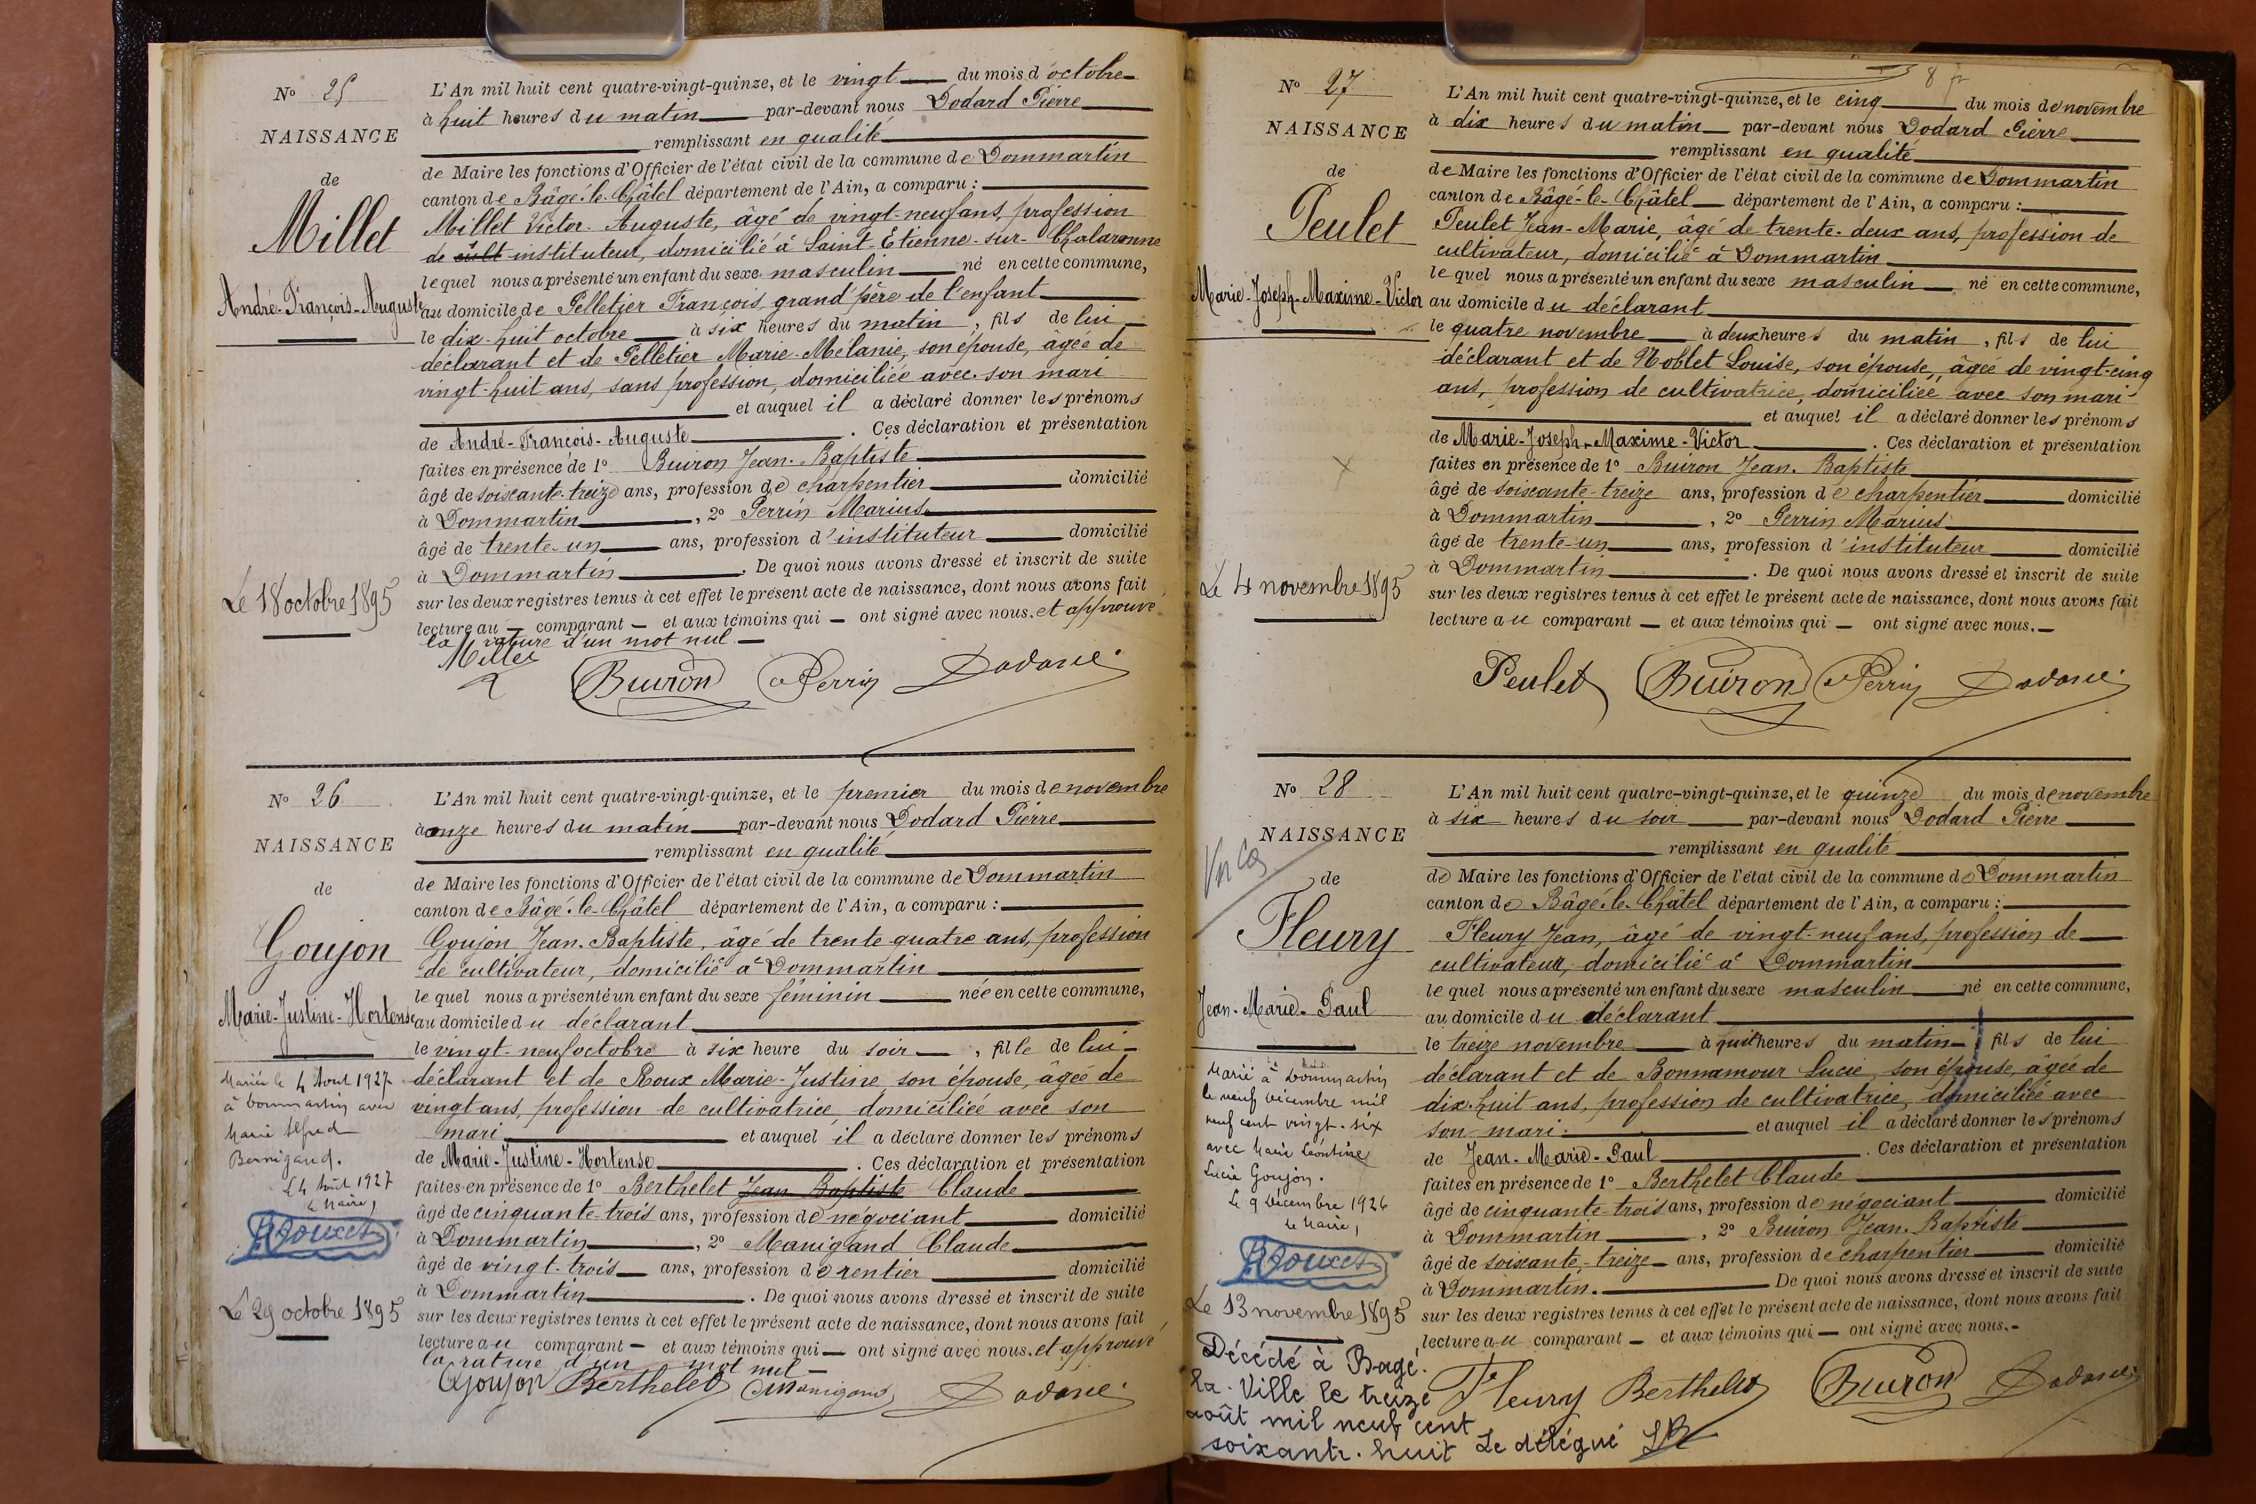 N° 25
NAISSANCE
de
Millet
André-François-Auguste
Le 18 octobre 1895
L'An mil huit cent quatre-vingt-quinze, et le vingt du mois d'octobre
à huit heures du matin par-devant nous Dodard Pierre
remplissant en qualité
de Maire les fonctions d'Officier de l'état civil de la commune de Dommartin
canton de Bâgé-le-Châtel département de l'Ain, a comparu :
Millet Victor-Auguste, âgé de vingt-neuf ans, profession
de cult instituteur, domicilié à Saint-Etienne-sur-Chalaronne
lequel nous a présenté un enfant du sexe masculin né en cette commune,
au domicile de Pelletier François grand'père de l'enfant
le dix-huit octobre à six heures du matin, fils de lui
déclarant et de Pelletier Marie-Mélanie, son épouse, âgée de
vingt-huit ans, sans profession, domiciliée avec son mari
et auquel il a déclaré donner les prénoms
de André-François-Auguste. Ces déclaration et présentation
faites en présence de 1° Buiron Jean-Baptiste
âgé de soixante-treize ans, profession de charpentier domicilié
à Dommartin, 2° Perrin Marius
âgé de trente-un ans, profession d'instituteur domicilié
à Dommartin. De quoi nous avons dressé et inscrit de suite
sur les deux registres tenus à cet effet le présent acte de naissance, dont nous avons fait
lecture au comparant et aux témoins qui ont signé avec nous. et approuvé
la rature d'un mot nul
Millet Buiron Perrin Dodard
N° 26
NAISSANCE
de
Goujon
Marie-Justine-Hortense
Mariée le 4 Aout 1927
à Dommartin avec
Marie Alfred
Bernigaud.
Le 4 Août 1927
Le Maire,
Le 29 octobre 1895
L'An mil huit cent quatre-vingt-quinze, et le premier du mois de novembre
à onze heures du matin par-devant nous Dodard Pierre
remplissant en qualité
de Maire les fonctions d'Officier de l'état civil de la commune de Dommartin
canton de Bâgé-le-Châtel département de l'Ain, a comparu :
Goujon Jean-Baptiste, âgé de trente quatre ans, profession
de cultivateur, domicilié à Dommartin
lequel nous a présenté un enfant du sexe féminin née en cette commune,
au domicile du déclarant
le vingt-neuf octobre à six heure du soir, fille de lui
déclarant et de Roux Marie-Justine, son épouse, âgée de
vingt ans, profession de cultivatrice, domiciliée avec son
mari et auquel il a déclaré donner les prénoms
de Marie-Justine-Hortense. Ces déclaration et présentation
faites en présence de 1° Berthelet Jean Baptiste Claude
âgé de cinquante-trois ans, profession de négociant domicilié
à Dommartin, 2° Manigand Claude
âgé de vingt-trois ans, profession de rentier domicilié
à Dommartin. De quoi nous avons dressé et inscrit de suite
sur les deux registres tenus à cet effet le présent acte de naissance, dont nous avons fait
lecture au comparant et aux témoins qui ont signé avec nous. et approuvé
la rature d'un mot nul
Goujon Berthelet Manigand Dodard
8
N° 27
NAISSANCE
de
Peulet
Marie-Joseph-Maxime-Victor
Le 4 novembre 1895
L'An mil huit cent quatre-vingt-quinze, et le cinq du mois de novembre
à dix heures du matin par-devant nous Dodard Pierre
remplissant en qualité
de Maire les fonctions d'Officier de l'état civil de la commune de Dommartin
canton de Bâgé-le-Châtel département de l'Ain, a comparu :
Peulet Jean-Marie, âgé de trente-deux ans, profession de
cultivateur, domicilié à Dommartin
lequel nous a présenté un enfant du sexe masculin né en cette commune,
au domicile du déclarant
le quatre novembre à deux heures du matin, fils de lui
déclarant et de Noblet Louise, son épouse, âgée de vingt-cinq
ans, profession de cultivatrice, domiciliée avec son mari
et auquel il a déclaré donner les prénoms
de Marie-Joseph-Maxime-Victor. Ces déclaration et présentation
faites en présence de 1° Buiron Jean-Baptiste
âgé de soixante-treize ans, profession de charpentier domicilié
à Dommartin, 2° Perrin Marius
âgé de trente-un ans, profession d'instituteur domicilié
à Dommartin. De quoi nous avons dressé et inscrit de suite
sur les deux registres tenus à cet effet le présent acte de naissance, dont nous avons fait
lecture au comparant et aux témoins qui ont signé avec nous.
Peulet Buiron Perrin Dodard
N° 28
NAISSANCE
de
Fleury
Jean-Marie-Paul
Marié à Dommartin
le neuf Décembre mil
neuf cent vingt-six
avec Marie Léontine
Lucie Goujon.
Le 9 Décembre 1926
Le Maire,
Le 13 novembre 1895
Décédé à Bagé-
la-Ville le treize
août mil neuf cent
soixante-huit Le délégué
L'An mil huit cent quatre-vingt-quinze, et le quinze du mois de novembre
à six heures du soir par-devant nous Dodard Pierre
remplissant en qualité
de Maire les fonctions d'Officier de l'état civil de la commune de Dommartin
canton de Bâgé-le-Châtel département de l'Ain, a comparu :
Fleury Jean, âgé de vingt-neuf ans, profession de
cultivateur, domicilié à Dommartin
lequel nous a présenté un enfant du sexe masculin né en cette commune,
au domicile du déclarant
le treize novembre à huit heures du matin, fils de lui
déclarant et de Bonnamour Lucie, son épouse, âgée de
dix-huit ans, profession de cultivatrice, domiciliée avec
son mari. et auquel il a déclaré donner les prénoms
de Jean-Marie-Paul. Ces déclaration et présentation
faites en présence de 1° Berthelet Claude
âgé de cinquante-trois ans, profession de négociant domicilié
à Dommartin, 2° Buiron Jean-Baptiste
âgé de soixante-treize ans, profession de charpentier domicilié
à Dommartin. De quoi nous avons dressé et inscrit de suite
sur les deux registres tenus à cet effet le présent acte de naissance, dont nous avons fait
lecture au comparant et aux témoins qui ont signé avec nous.
Fleury Berthelet Buiron Dodard